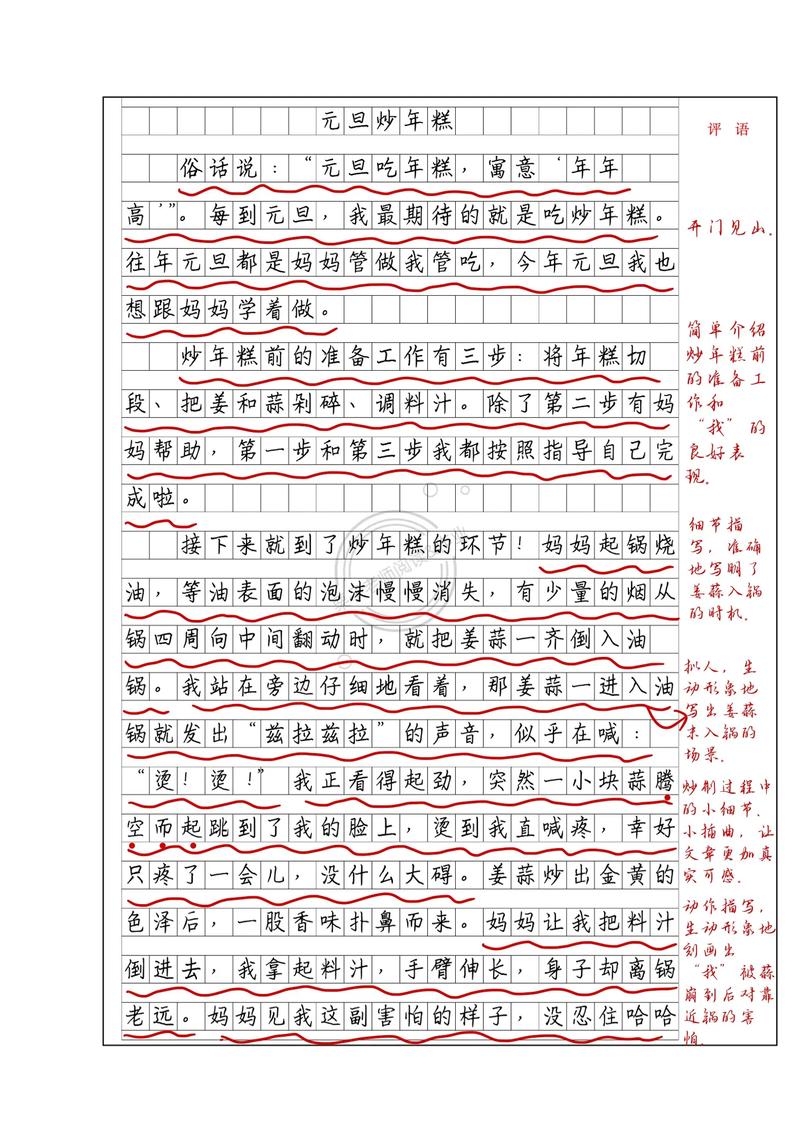 元旦炒年糕
评语
俗话说：“元旦吃年糕，寓意‘年年
高’”。每到元旦，我最期待的就是吃炒年糕。
往年元旦都是妈妈管做我管吃，今年元旦我也
想跟妈妈学着做。
开门见山.
炒年糕前的准备工作有三步：将年糕切
段、把姜和蒜剁碎、调料汁。除了第二步有妈
妈帮助，第一步和第三步我都按照指导自己完
成啦。
简单介绍
炒年糕前
的准备工
作和
“我”的
良好表
现.
接下来就到了炒年糕的环节！妈妈起锅烧
油，等油表面的泡沫慢慢消失，有少量的烟从
锅四周向中间翻动时，就把姜蒜一齐倒入油
锅。我站在旁边仔细地看着，那姜蒜一进入油
锅就发出“兹拉兹拉”的声音，似乎在喊：
“烫！烫！”我正看得起劲，突然一小块蒜腾
空而起跳到了我的脸上，烫到我直喊疼，幸好
只疼了一会儿，没什么大碍。姜蒜炒出金黄的
色泽后，一股香味扑鼻而来。妈妈让我把料汁
倒进去，我拿起料汁，手臂伸长，身子却离锅
老远。妈妈见我这副害怕的样子，没忍住哈哈
细节描
写，准确
地写明了
姜蒜入锅
的时机.
拟人，生
动形象地
写出姜蒜
末入锅的
场景.
炒制过程中
的小细节、
小插曲，让
文章更加真
实可感.
动作描写，
生动形象地
刻画出
“我”被蒜
崩到后对靠
近锅的害
怕.